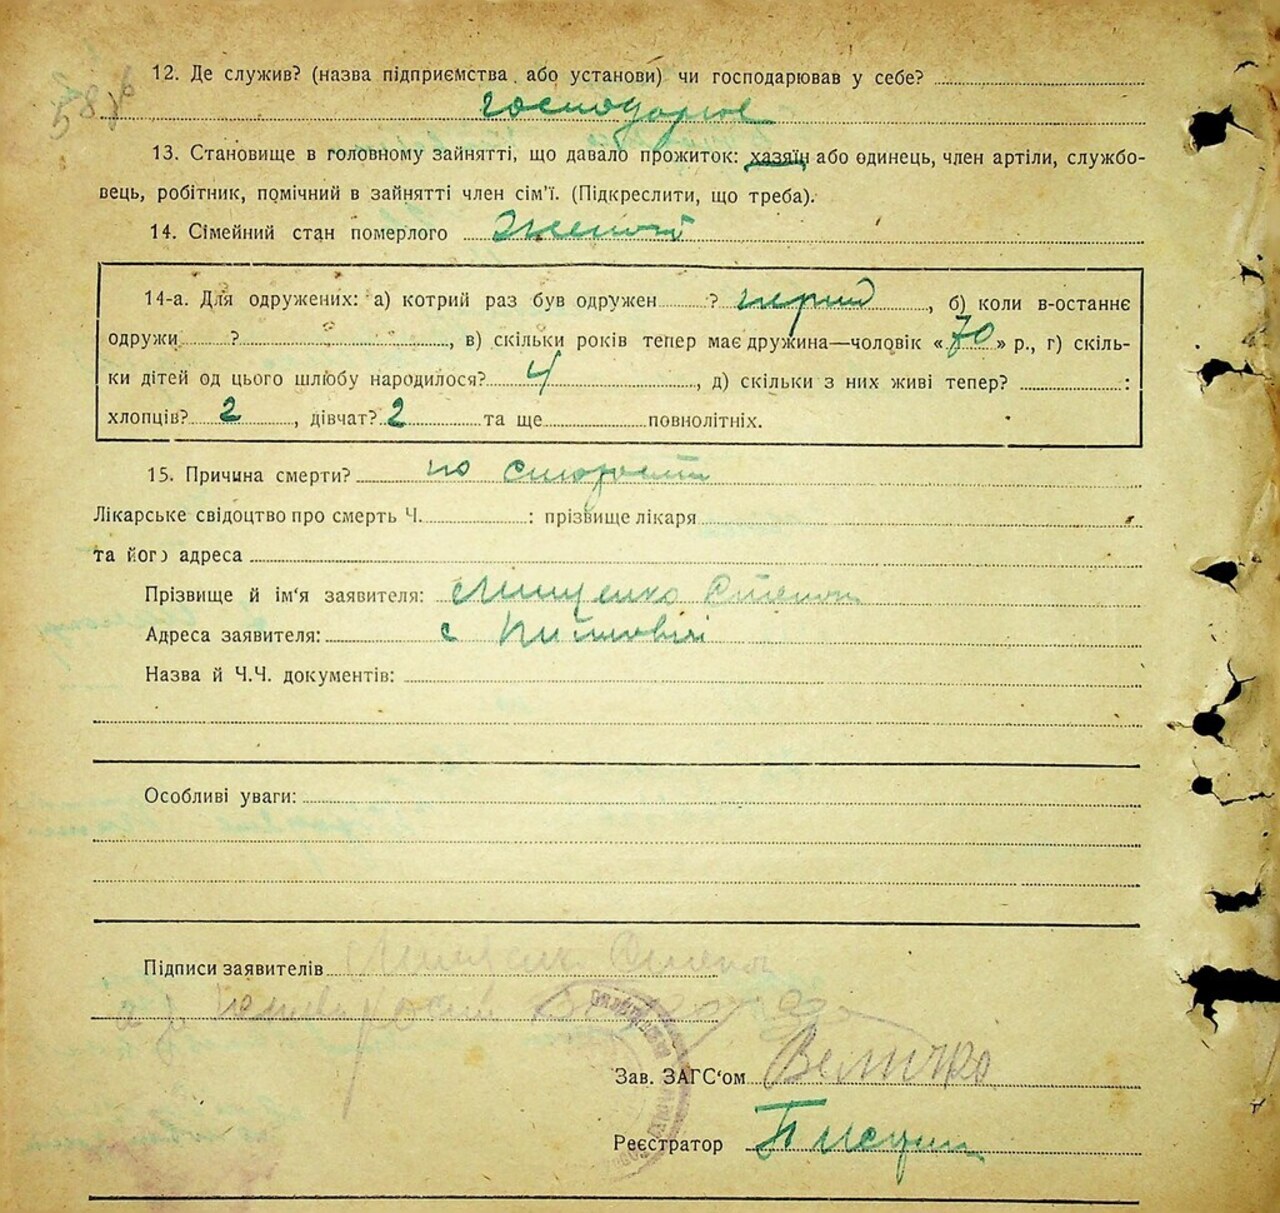 12. Де служив? (назва підприємства або установи) чи господарював у себе?
господарює
13. Становище в головному зайнятті, що давало прожиток: хазяїн або одинець, член артіли, службо-
вець, робітник, помічний в зайнятті член сім'ї. (Підкреслити, що треба).
14. Сімейний стан померлого
14-а. Для одружених: а) котрий раз був одружен ? перший, б) коли в-останнє
одружи ? , в) скільки років тепер має дружина—чоловік «70» р., г) скіль-
ки дітей од цього шлюбу народилося? 4, д) скільки з них живі тепер? :
хлопців? 2, дівчат? 2 та ще повнолітніх.
15. Причина смерти? по старости
Лікарське свідоцтво про смерть Ч. : прізвище лікаря
та його адреса
Прізвище й ім'я заявителя: Мищенко Степан
Адреса заявителя: с
Назва й Ч.Ч. документів:
Особливі уваги:
Підписи заявителів Мищенко Степан
Зав. ЗАГС'ом Величко
Реєстратор